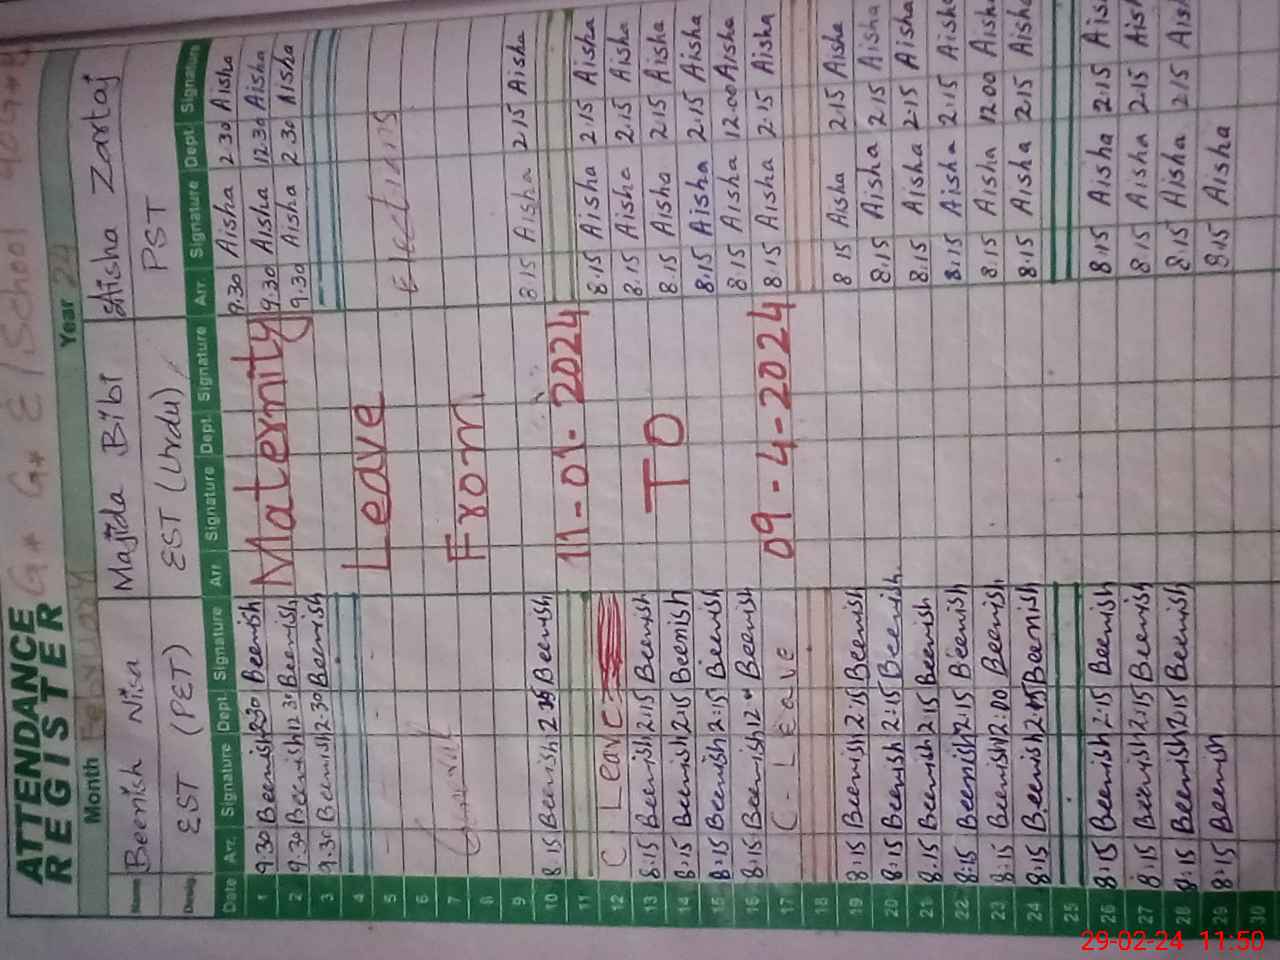 ATTENDANCE REGISTER G* G* E/School
Month February Year 24
Name Beenish Nisa Majida Bibi Aisha Zartaj
Desig. EST (PET) EST (Urdu) PST
Date Arr. Signature Dept. Signature Arr. Signature Dept. Signature Arr. Signature Dept. Signature
1 9.30 Beenish 2.30 Beenish Maternity 9.30 Aisha 2.30 Aisha
2 9.30 Beenish 12.30 Beenish 9.30 Aisha 12.30 Aisha
3 9.30 Beenish 2.30 Beenish 9.30 Aisha 2.30 Aisha
4 Leave
5 Elections
6
7 From
8
9
10 8.15 Beenish 2.15 Beenish 11-01-2024 8.15 Aisha 2.15 Aisha
11
12 C Leave 8.15 Aisha 2.15 Aisha
13 8.15 Beenish 2.15 Beenish TO 8.15 Aisha 2.15 Aisha
14 8.15 Beenish 2.15 Beenish 8.15 Aisha 2.15 Aisha
15 8.15 Beenish 2.15 Beenish 8.15 Aisha 2.15 Aisha
16 8.15 Beenish 12.00 Beenish 8.15 Aisha 12.00 Aisha
17 C. Leave 09-4-2024 8.15 Aisha 2.15 Aisha
18
19 8:15 Beenish 2:15 Beenish 8.15 Aisha 2.15 Aisha
20 8:15 Beenish 2:15 Beenish 8.15 Aisha 2.15 Aisha
21 8:15 Beenish 2:15 Beenish 8.15 Aisha 2.15 Aisha
22 8:15 Beenish 2:15 Beenish 8.15 Aisha 2.15 Aisha
23 8:15 Beenish 12:00 Beenish 8.15 Aisha 12.00 Aisha
24 8:15 Beenish 2:15 Beenish 8.15 Aisha 2.15 Aisha
25
26 8:15 Beenish 2:15 Beenish 8.15 Aisha 2.15 Aisha
27 8:15 Beenish 2:15 Beenish 8.15 Aisha 2.15 Aisha
28 8:15 Beenish 2:15 Beenish 8.15 Aisha 2.15 Aisha
29 8:15 Beenish 8.15 Aisha
30
29-02-24 11:50